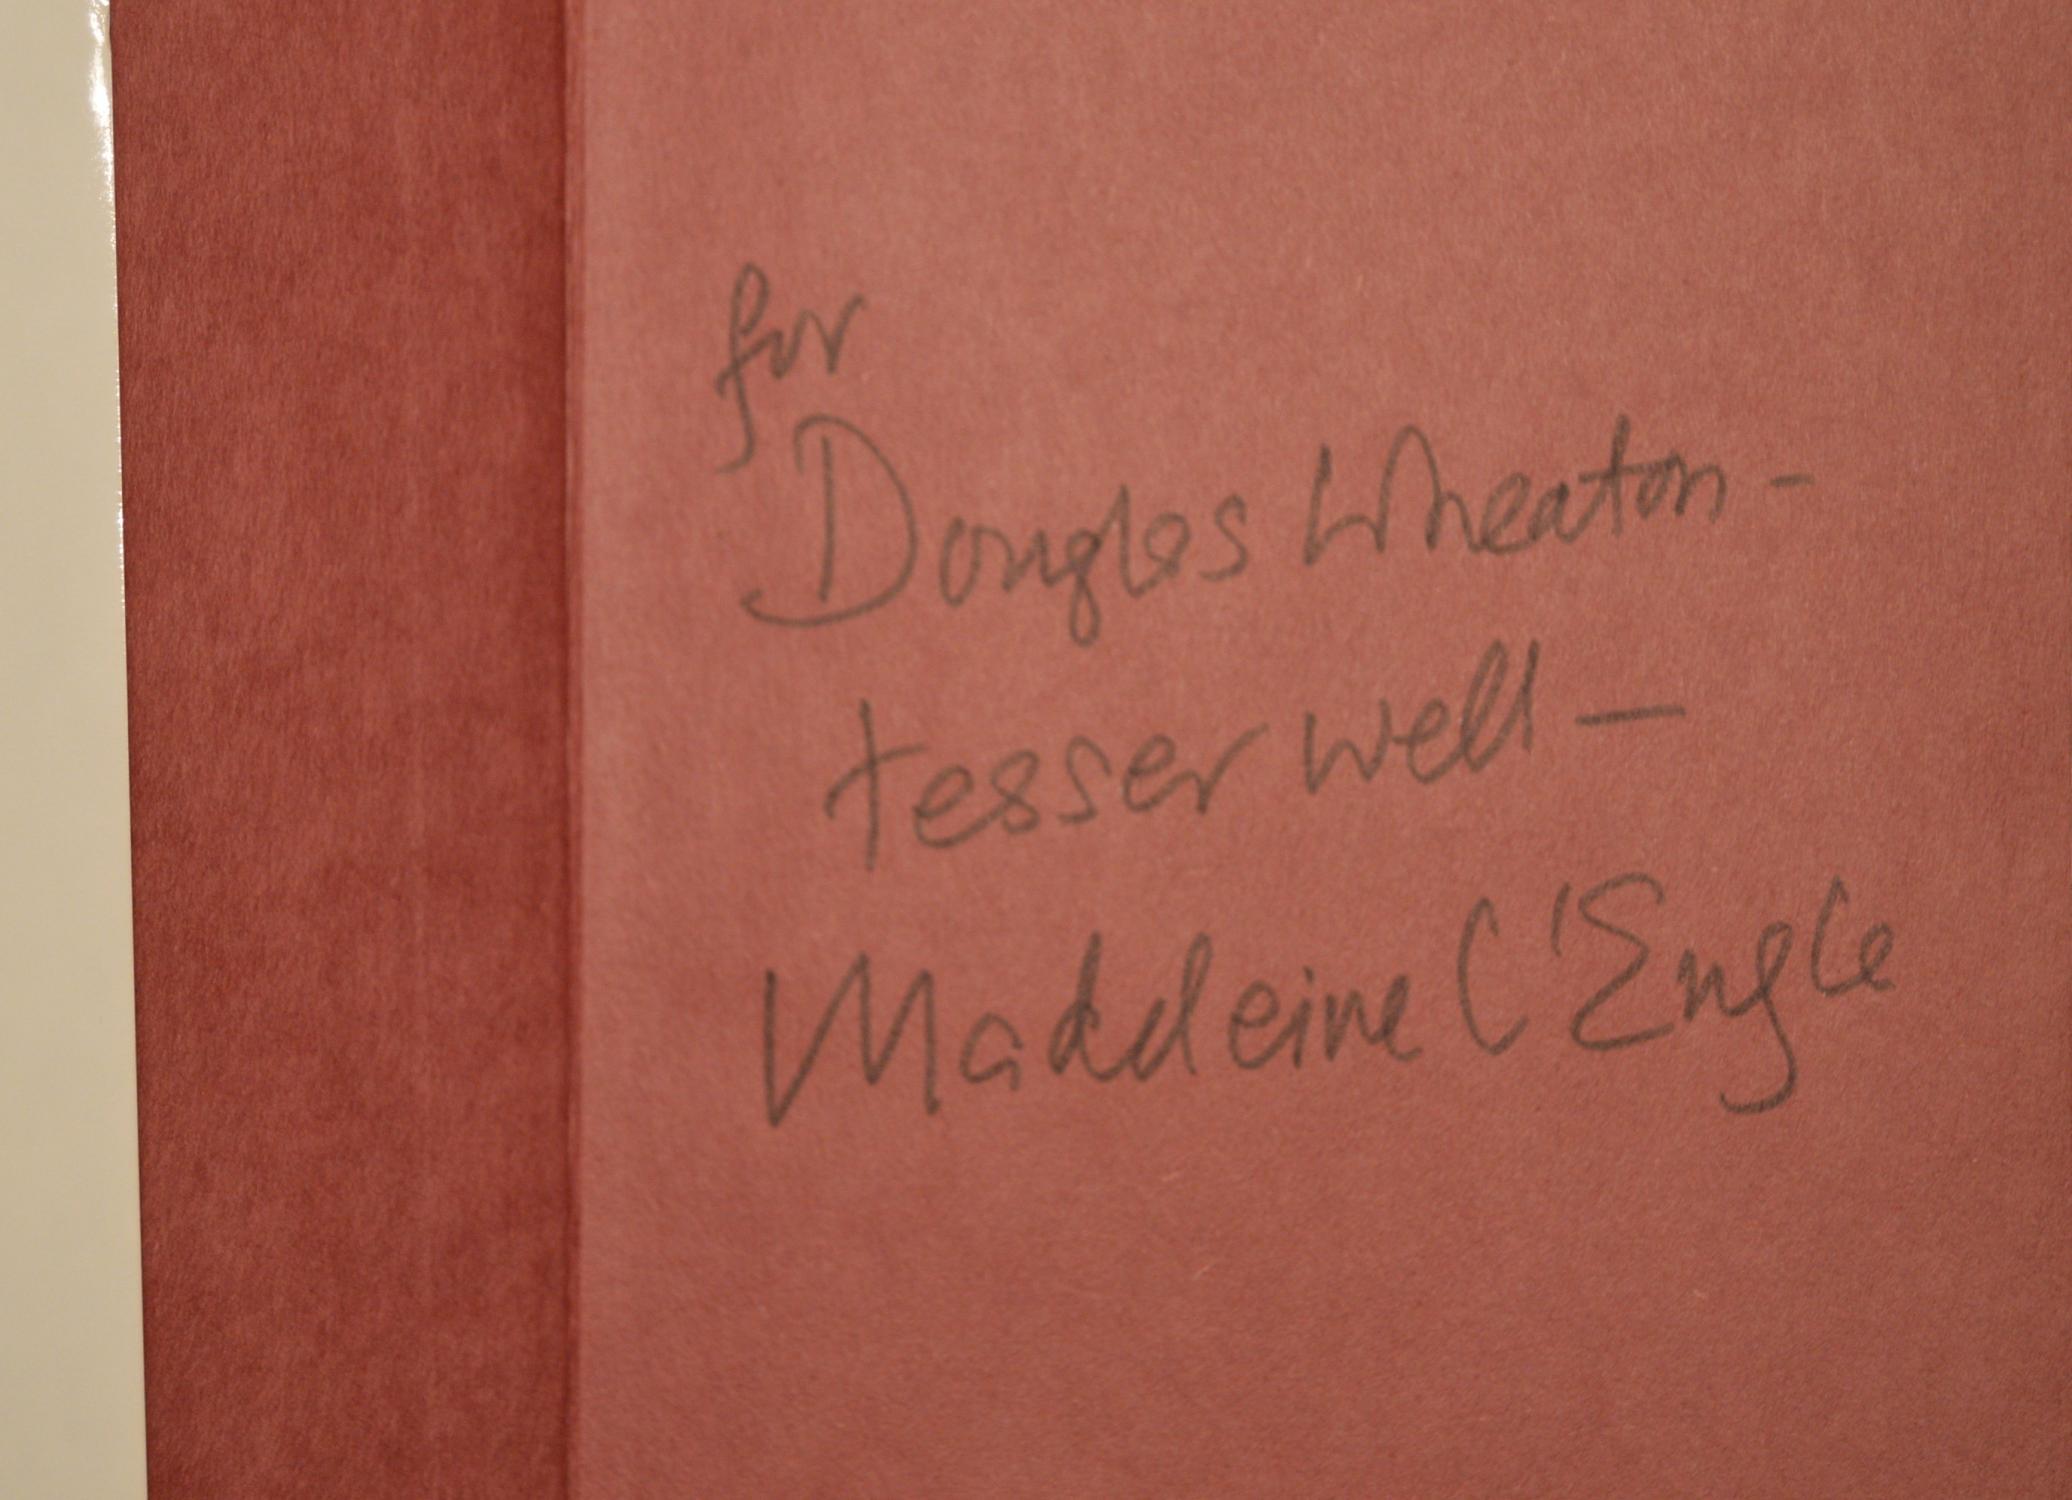 for
Douglas Wheaton -
tesser well —
Madeleine L'Engle